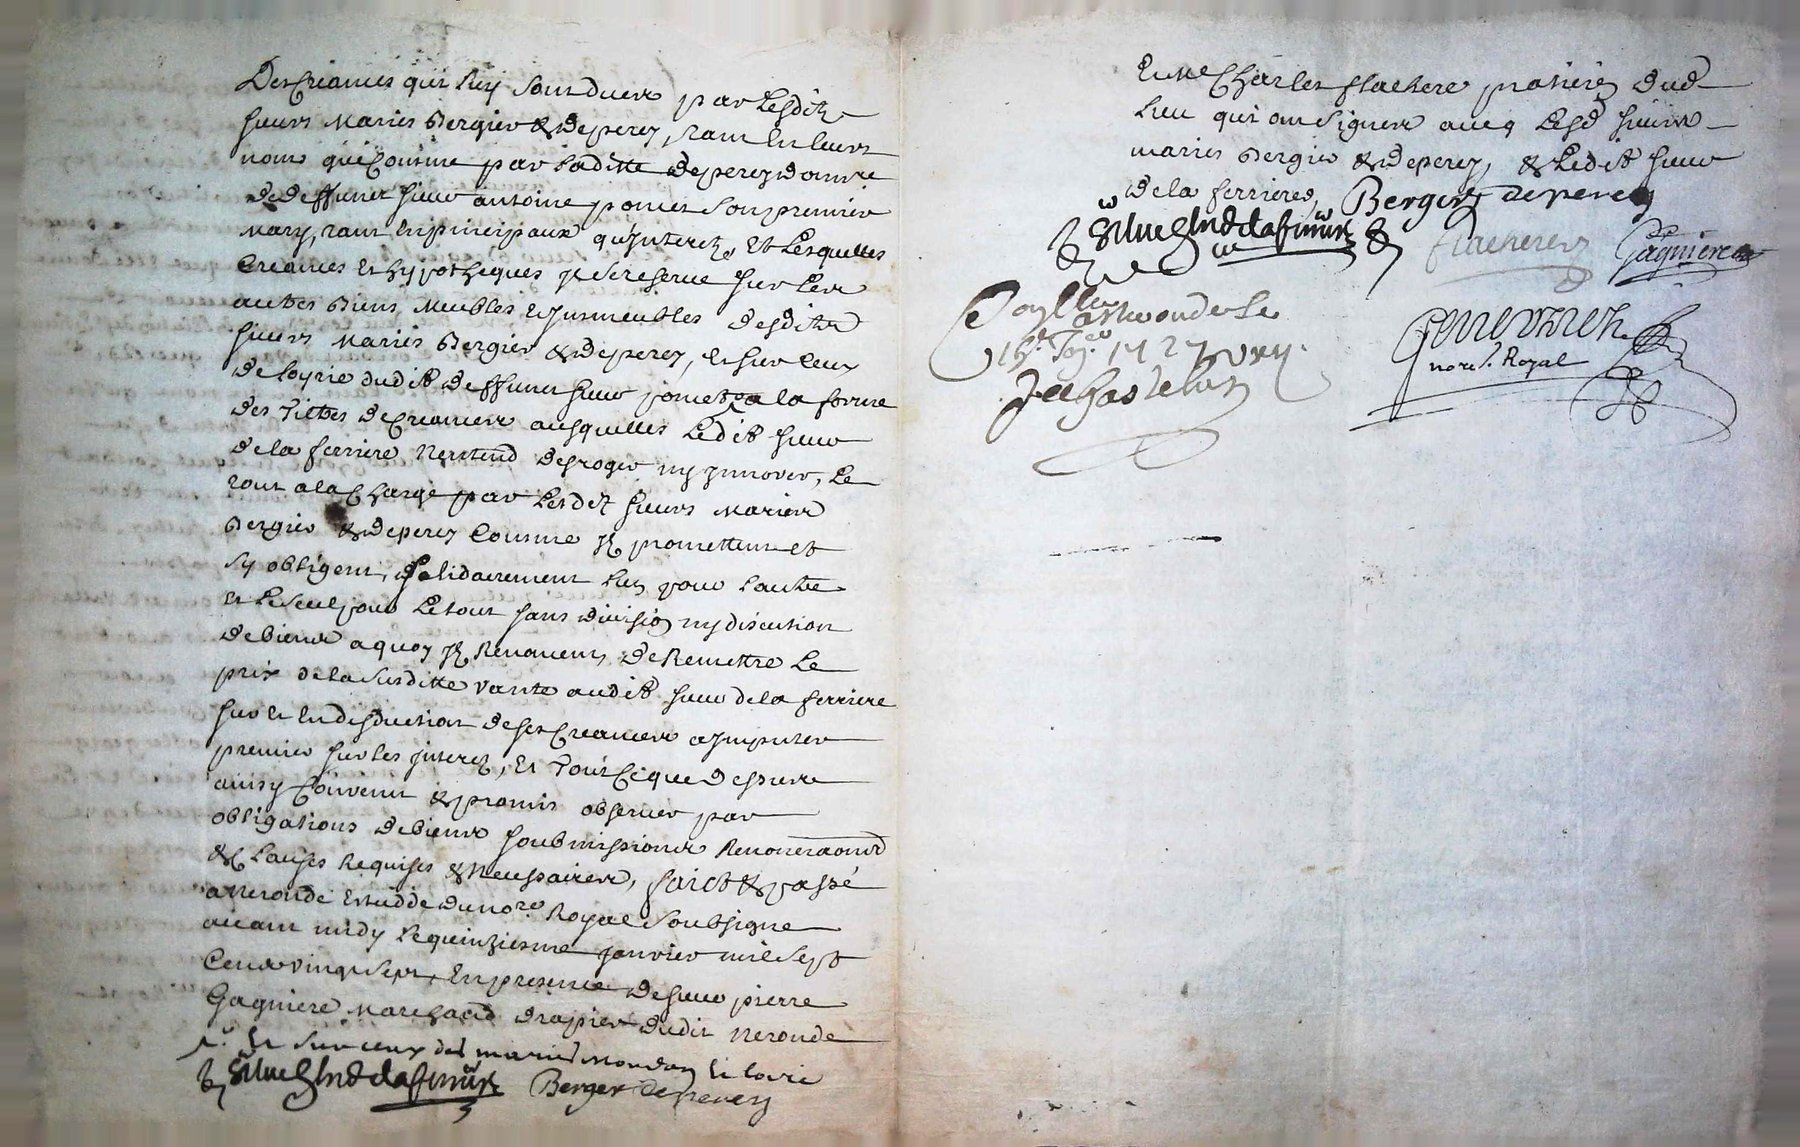 Des Creances qui luy sont dues par lesdits
sieurs mariés Bergier & deperey, tant en leurs
noms que comme par laditte deperey donnée
de deffunct sieur antoine poncet son premier
mary, tant en principaux qu'interetz, Et lesquelles
Creances et hypotheques il se reserve sur les
autres biens, meubles et immeubles desdits
sieurs mariés Bergier & deperey, et sur ceux
de loyrie dudit deffunct sieur poncet a la forme
des Tiltres de Creances ausquelles ledit sieur
de la ferriere n'entend desroger ny innover, Le
tout a la Charge par lesdits sieurs mariés
Bergier & deperey Comme ilz promettent et
sy obligent, solidairement l'un pour l'autre
et le seul pour le tout sans division ny discution
de biens a quoy ilz Renoncent, de Remettre le
prix de la susditte vante audit sieur de la ferriere
sur et en desduction de ses Creances a imputer
premier sur les interetz, Et Tout Ce que dessus
ainsy Convenu & promis observer par
obligations de biens soubmissions Renonciaonns
& Clauses Requises & necessaires, faict & passé
a neronde estudde du nore. Royal soubsigné
avant midy le quinziesme janvier mil sept
Cent vingt sept, En presence de sieur pierre
Gagniere marchand drapier dudit neronde
et sur ceux des mariés
Berger deperey
Et Me Charles flachere praticien dud
lieu qui ont signés avec lesd sieurs
mariés Bergier & deperey, & ledit sieur
de la ferriere, Berger deperey
flachere Gagniere
Conllé a Neronde le
16e. Jer. 1727
nore. Royal